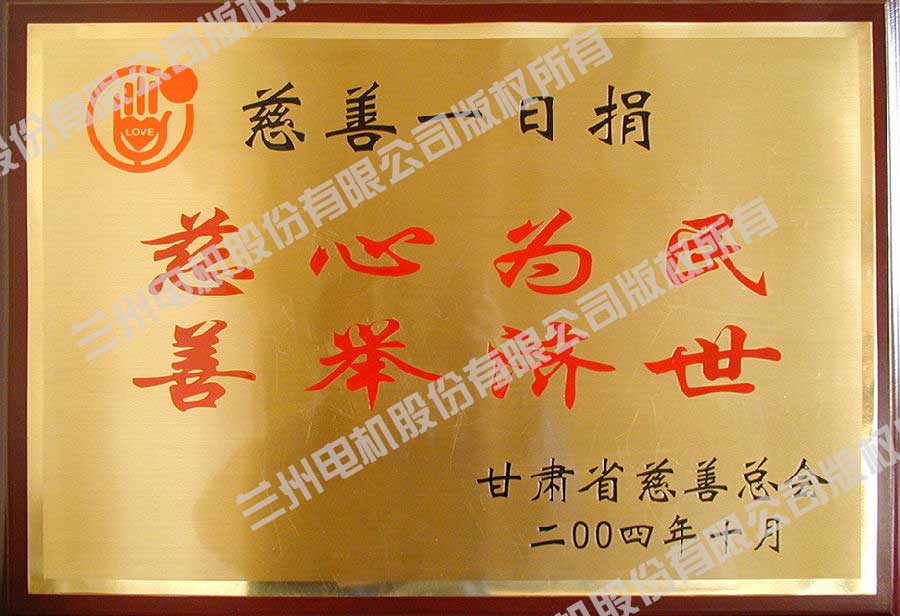 LOVE
慈善一日捐
慈心为民
善举济世
甘肃省慈善总会
二00四年十月
兰州电机股份有限公司版权所有
兰州电机股份有限公司版权所有
兰州电机股份有限公司版权所有
兰州电机股份有限公司版权所有